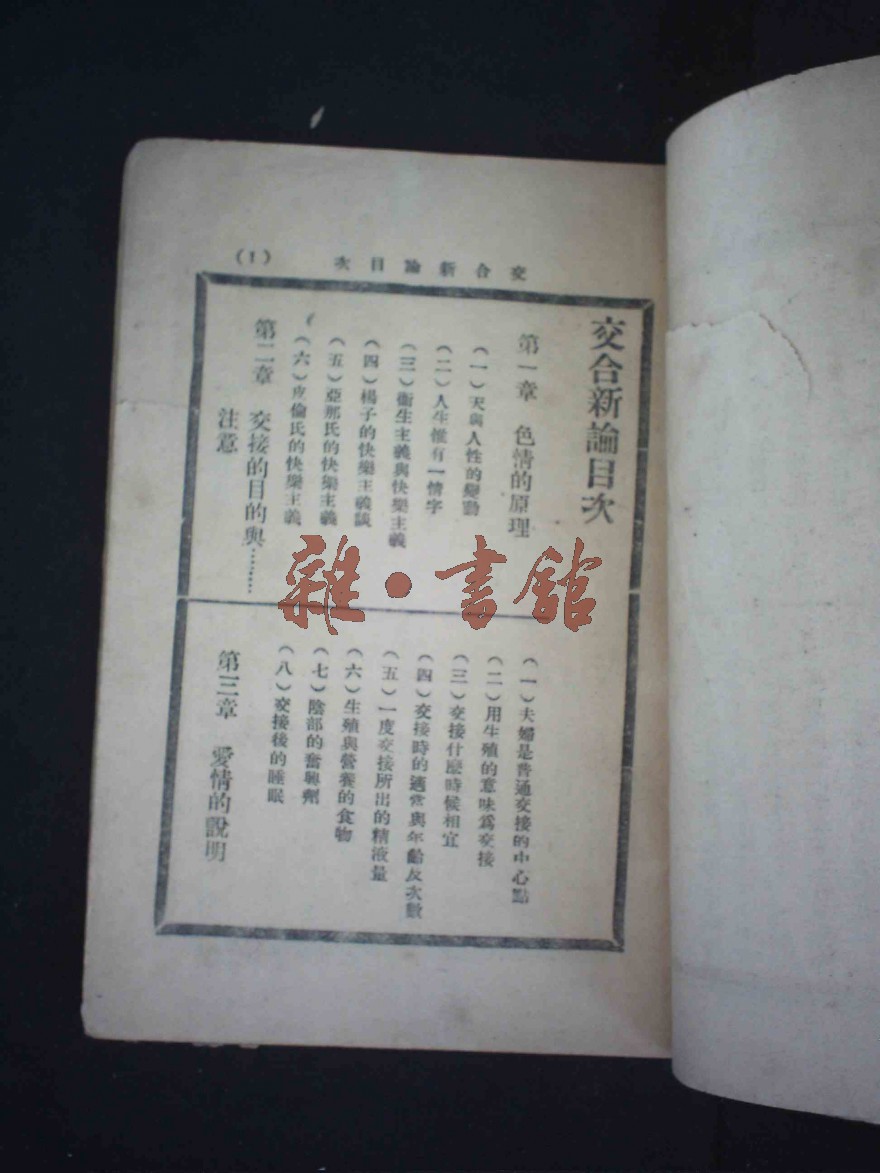 交合新論目次
(1)
交合新論目次
第一章 色情的原理
(一)天與人性的變動
(二)人生惟有一情字
(三)衞生主義與快樂主義
(四)楊子的快樂主義談
(五)亞那氏的快樂主義
(六)皮倫氏的快樂主義
第二章 交接的目的與………
注意
(一)夫婦是普通交接的中心點
(二)用生殖的意味爲交接
(三)交接什麼時候相宜
(四)交接時的適當與年齡及次數
(五)一度交接所出的精液量
(六)生殖與營養的食物
(七)陰部的奮興劑
(八)交接後的睡眠
第三章 愛情的說明
雜·書館